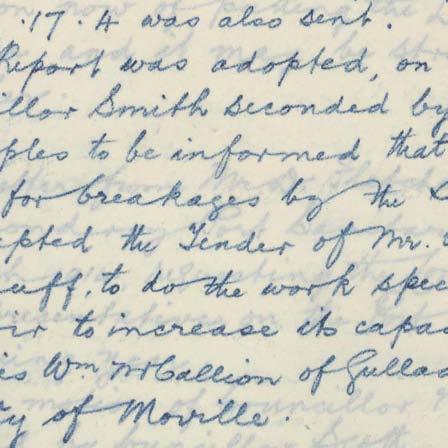 .17.4 was also sent.
Report was adopted, on
illor Smith seconded by
ples to be informed that
for breakages by the
epted the Tender of Mr.
uff, to do the work spec
ir to increase its capac
es Wm McCallion of Gulla
ty of Moville.